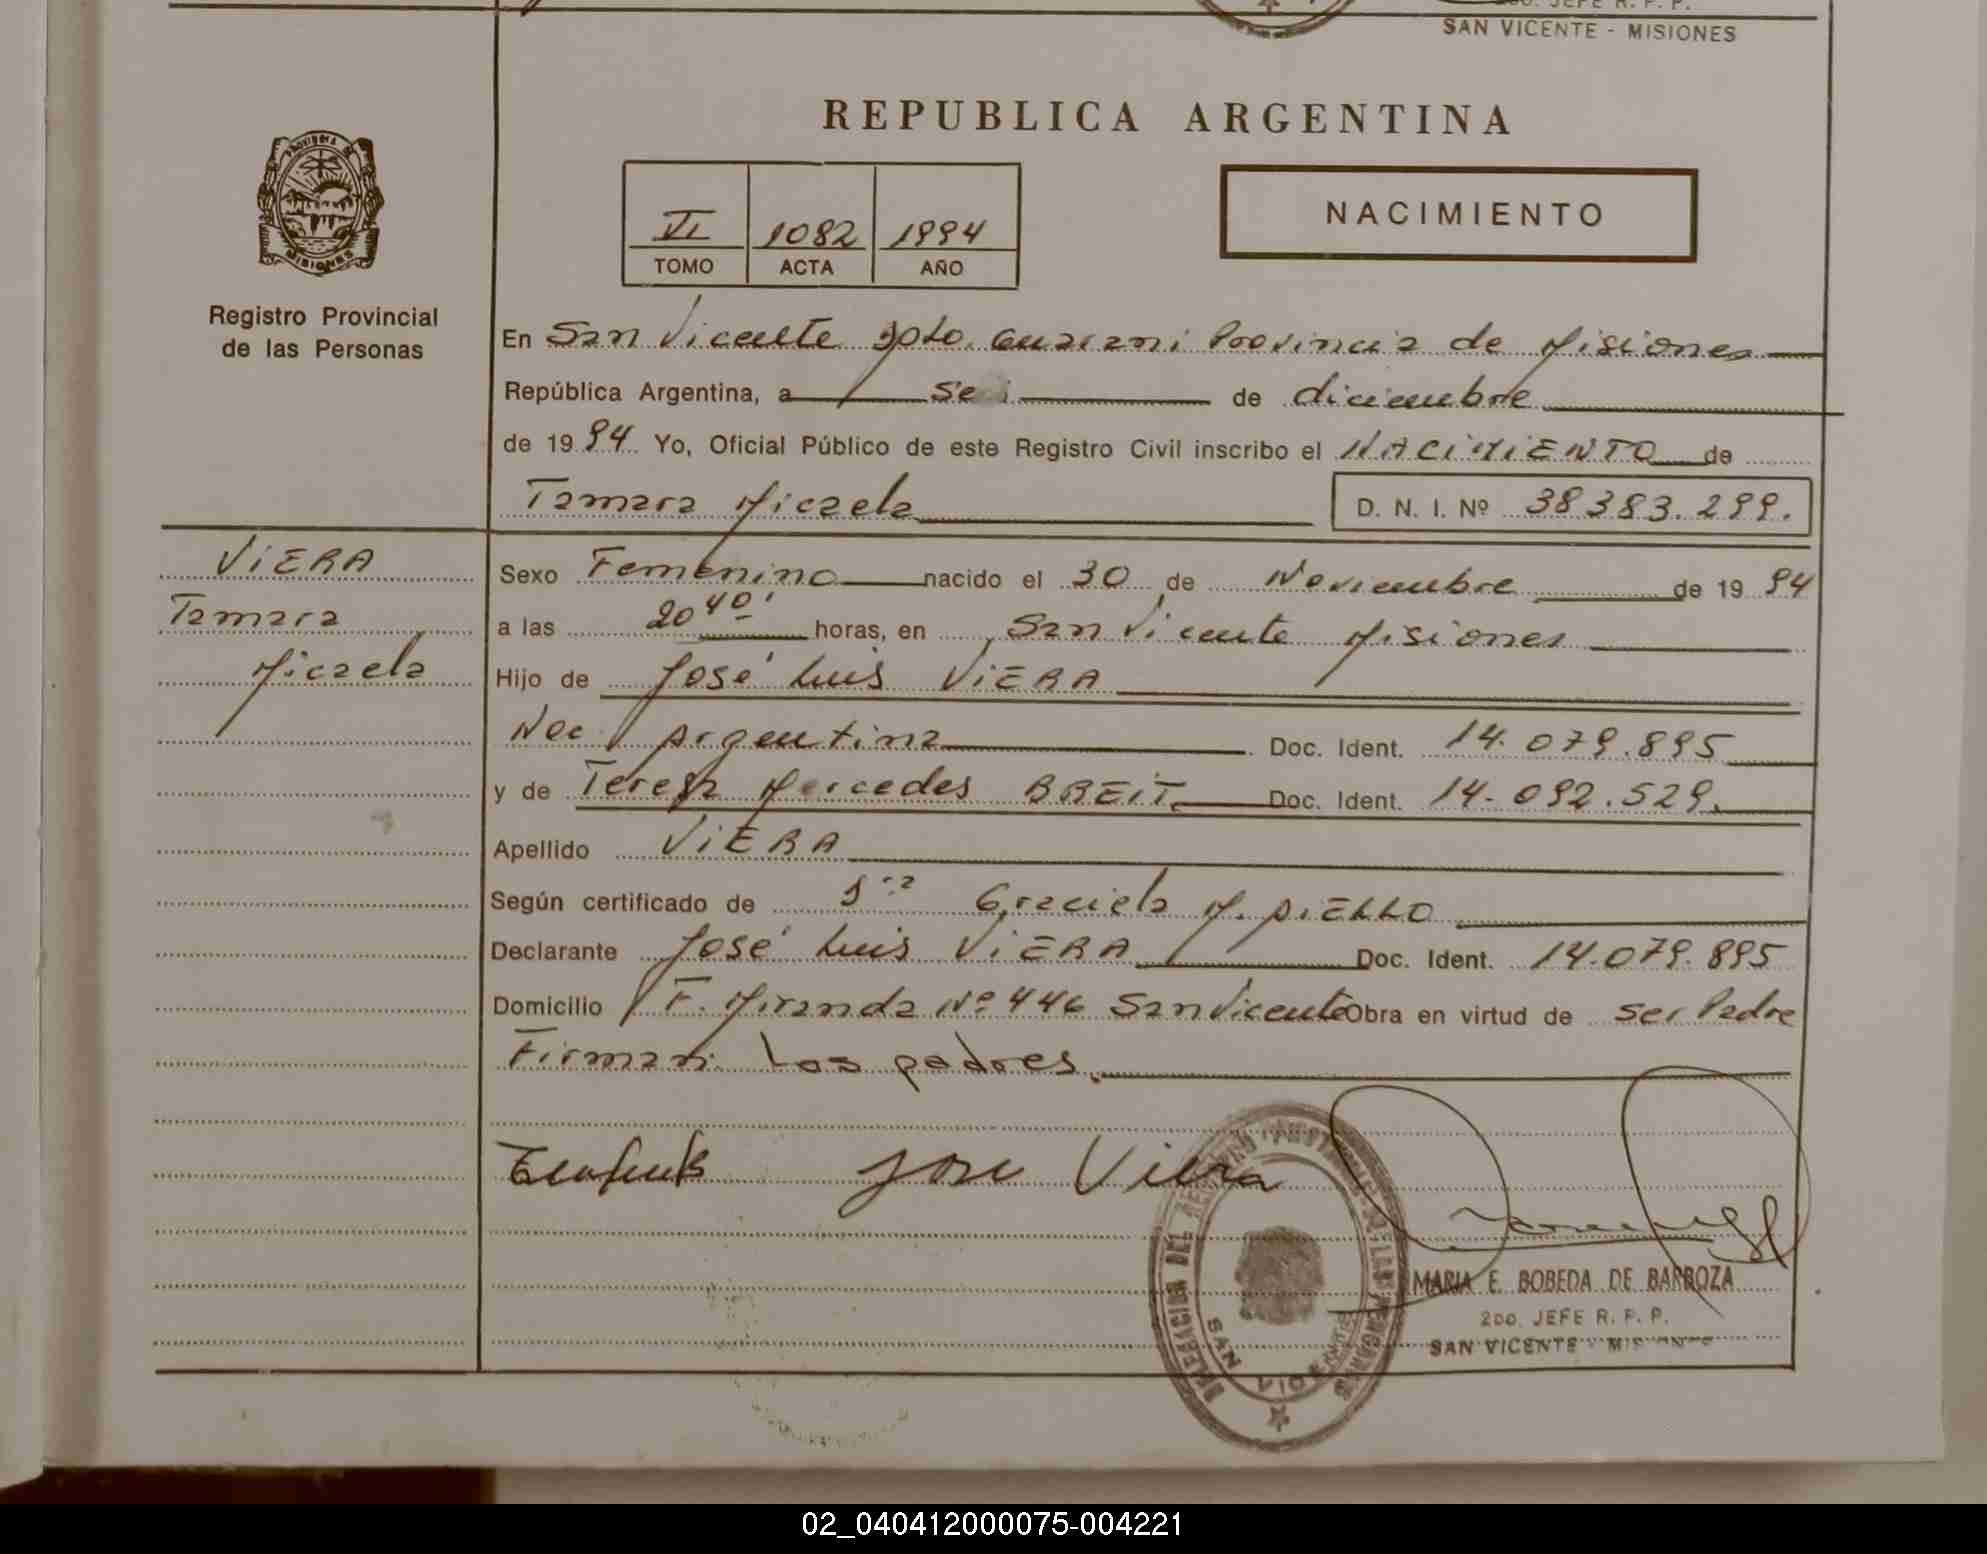 2do. JEFE R. P. P.
SAN VICENTE - MISIONES
REPUBLICA ARGENTINA
PROVINCIA DE MISIONES
Registro Provincial
de las Personas
VI 1082 1994
TOMO ACTA AÑO
NACIMIENTO
En San Vicente Dpto. Guarani Provincia de Misiones
República Argentina, a seis de diciembre
de 1994 Yo, Oficial Público de este Registro Civil inscribo el NACIMIENTO de
Tamara Micaela D. N. I. Nº 38383.299.
VIERA
Tamara
Micaela
Sexo Femenino nacido el 30 de Noviembre de 1994
a las 20 40' horas, en San Vicente Misiones
Hijo de José Luis VIERA
Nac. Argentina Doc. Ident. 14.079.895
y de Teresa Mercedes BREIT Doc. Ident. 14.092.529.
Apellido VIERA
Según certificado de Graciela M. DIELLO
Declarante José Luis VIERA Doc. Ident. 14.079.895
Domicilio F. Miranda Nº 446 San Vicente Obra en virtud de ser Padre
Firman: Los padres.
Jose Viera
DELEGACION DEL REGISTRO PROVINCIAL DE LAS PERSONAS
SAN VICENTE
MARIA E. BOBEDA DE BARBOZA
2do. JEFE R. P. P.
SAN VICENTE - MISIONES
02_040412000075-004221